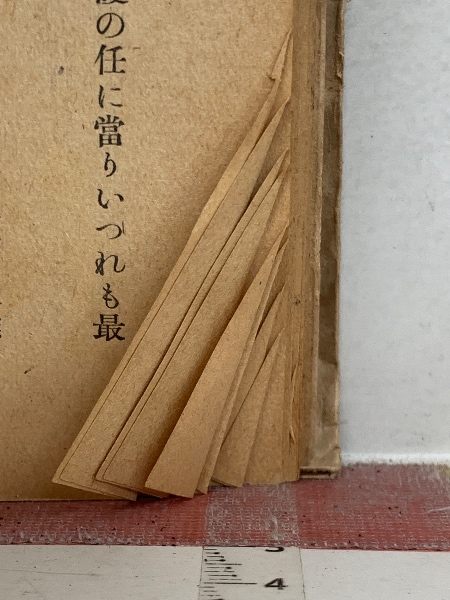 の任に當りいつれも最
3
4